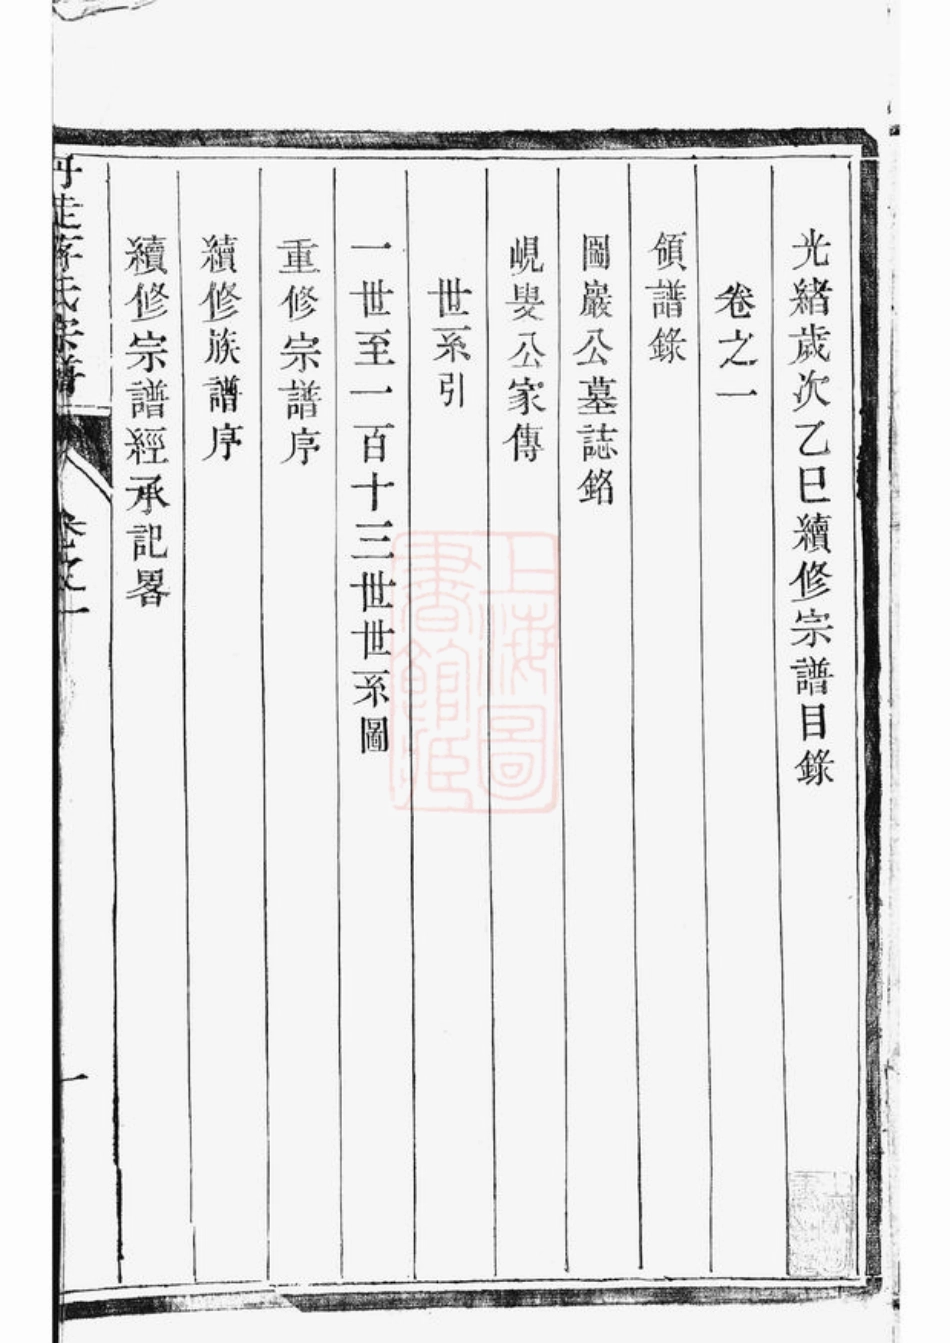 光緒歲次乙巳續修宗譜目錄
卷之一
領譜錄
圖巖公墓誌銘
峴叟公家傳
世系引
一世至一百十三世世系圖
重修宗譜序
續修族譜序
續修宗譜經承記畧
蔣氏宗譜
卷之一
一
上海圖書館藏